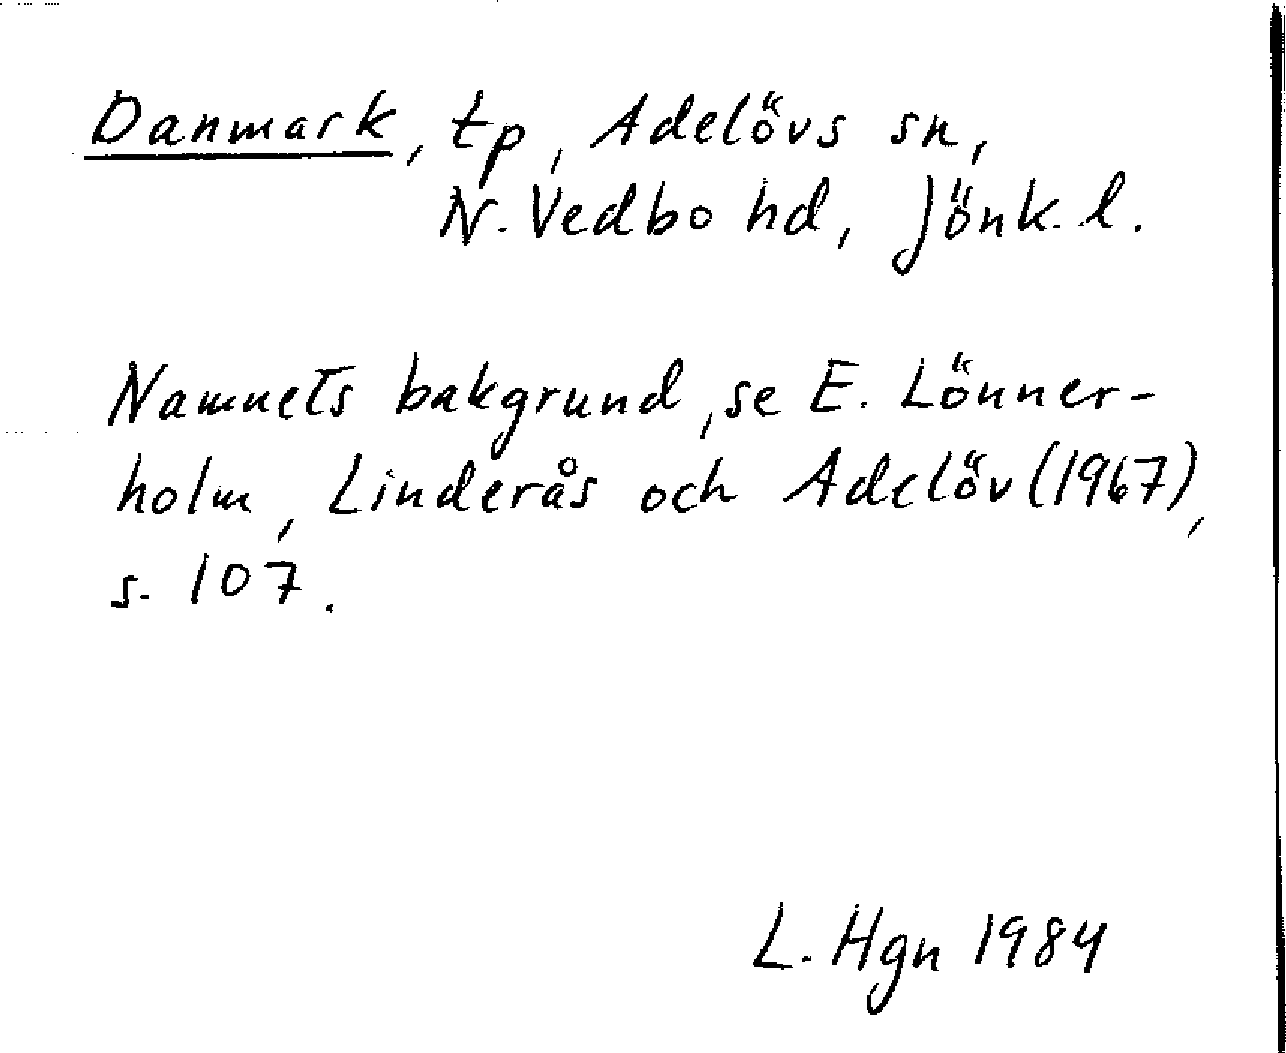 Danmark, tp, Adelövs sn,
N. Vedbo hd, Jönk. l.
Namnets bakgrund, se E. Lönner-
holm, Linderås och Adelöv (1967),
s. 107.
L. Hgn 1984